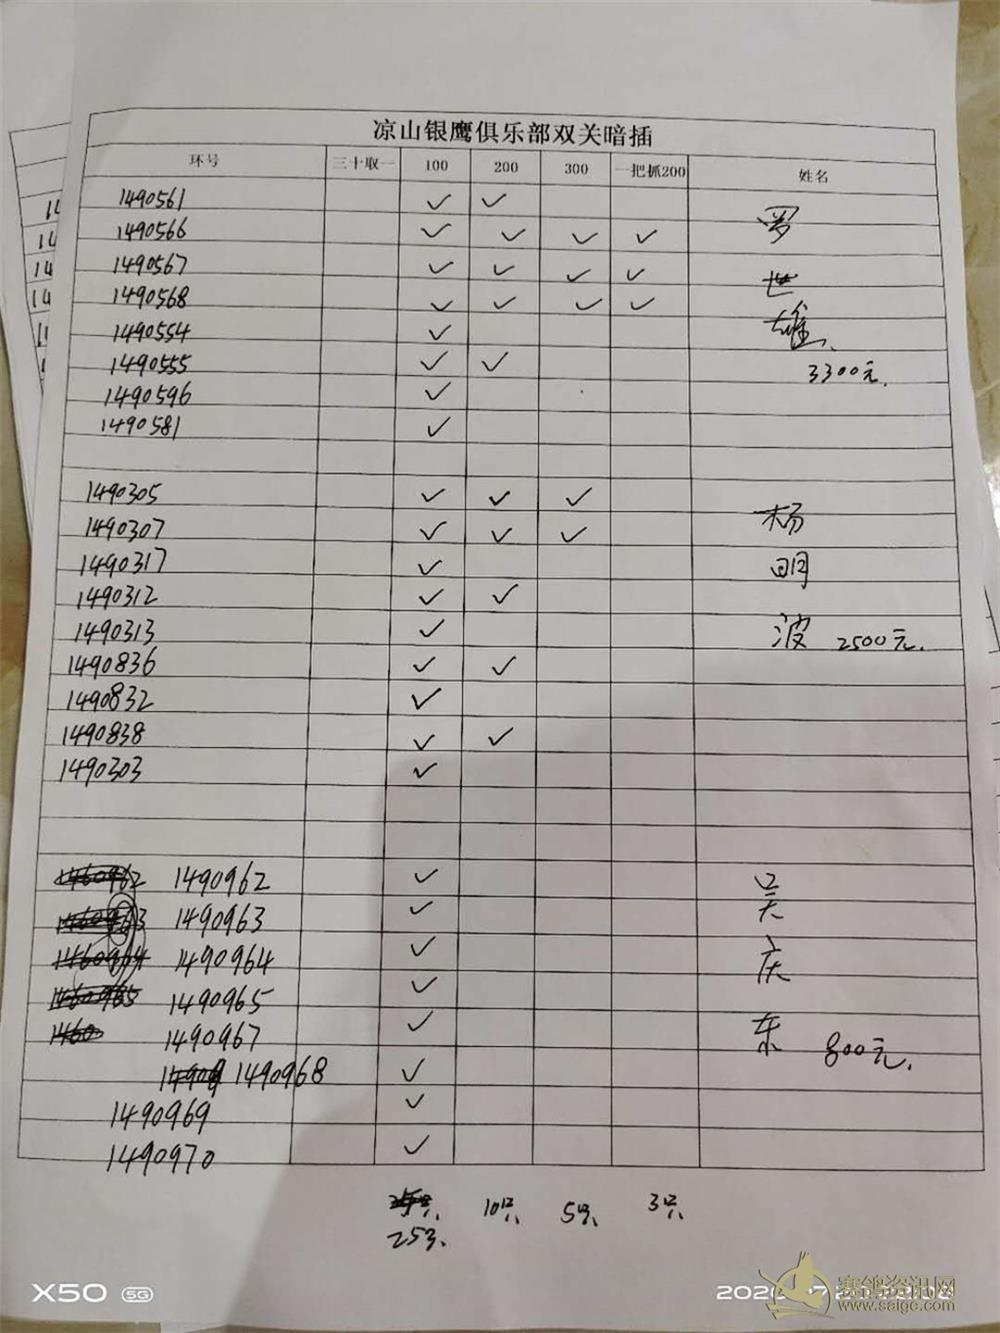 凉山银鹰俱乐部双关暗插
环号 三十取一 100 200 300 一把抓200 姓名
1490561 ✓ ✓
1490566 ✓ ✓ ✓ ✓ 罗
1490567 ✓ ✓ ✓ ✓ 世
1490568 ✓ ✓ ✓ ✓
1490554 ✓ 雄
1490555 ✓ ✓ 3300元.
1490596 ✓
1490581 ✓
1490305 ✓ ✓ ✓
1490307 ✓ ✓ ✓ 杨
1490317 ✓ 明
1490312 ✓ ✓
1490313 ✓ 波 2500元.
1490836 ✓ ✓
1490832 ✓
1490838 ✓ ✓
1490303 ✓
1460962 1490962 ✓ 吴
1490963 ✓
1460964 1490964 ✓ 庆
1460965 1490965 ✓
1460 1490967 ✓ 东 800元.
1490968 ✓
1490969 ✓
1490970 ✓
10只、 5只、 3只、
25只、
X50 5G
赛鸽资讯网
www.saige.com